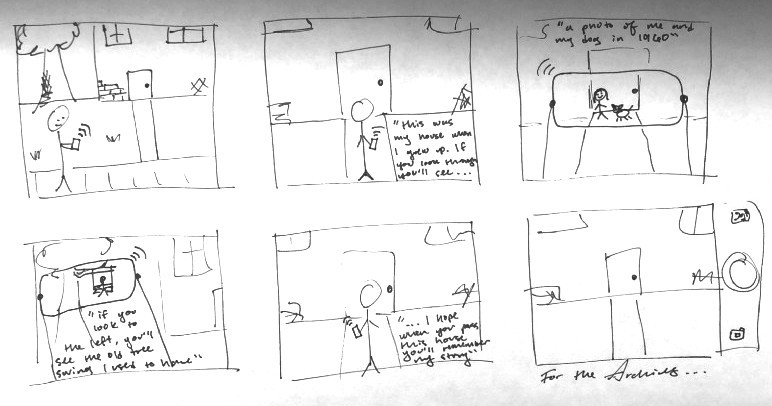 "this was
my house when
I grew up. If
you look through
you'll see...
"a photo of me and
my dog in 1960"
"if you
look to
the left, you'll
see the old tree
swing I used to have"
"... I hope
when you pass
this house
you'll remember
my story"
For the Archives...